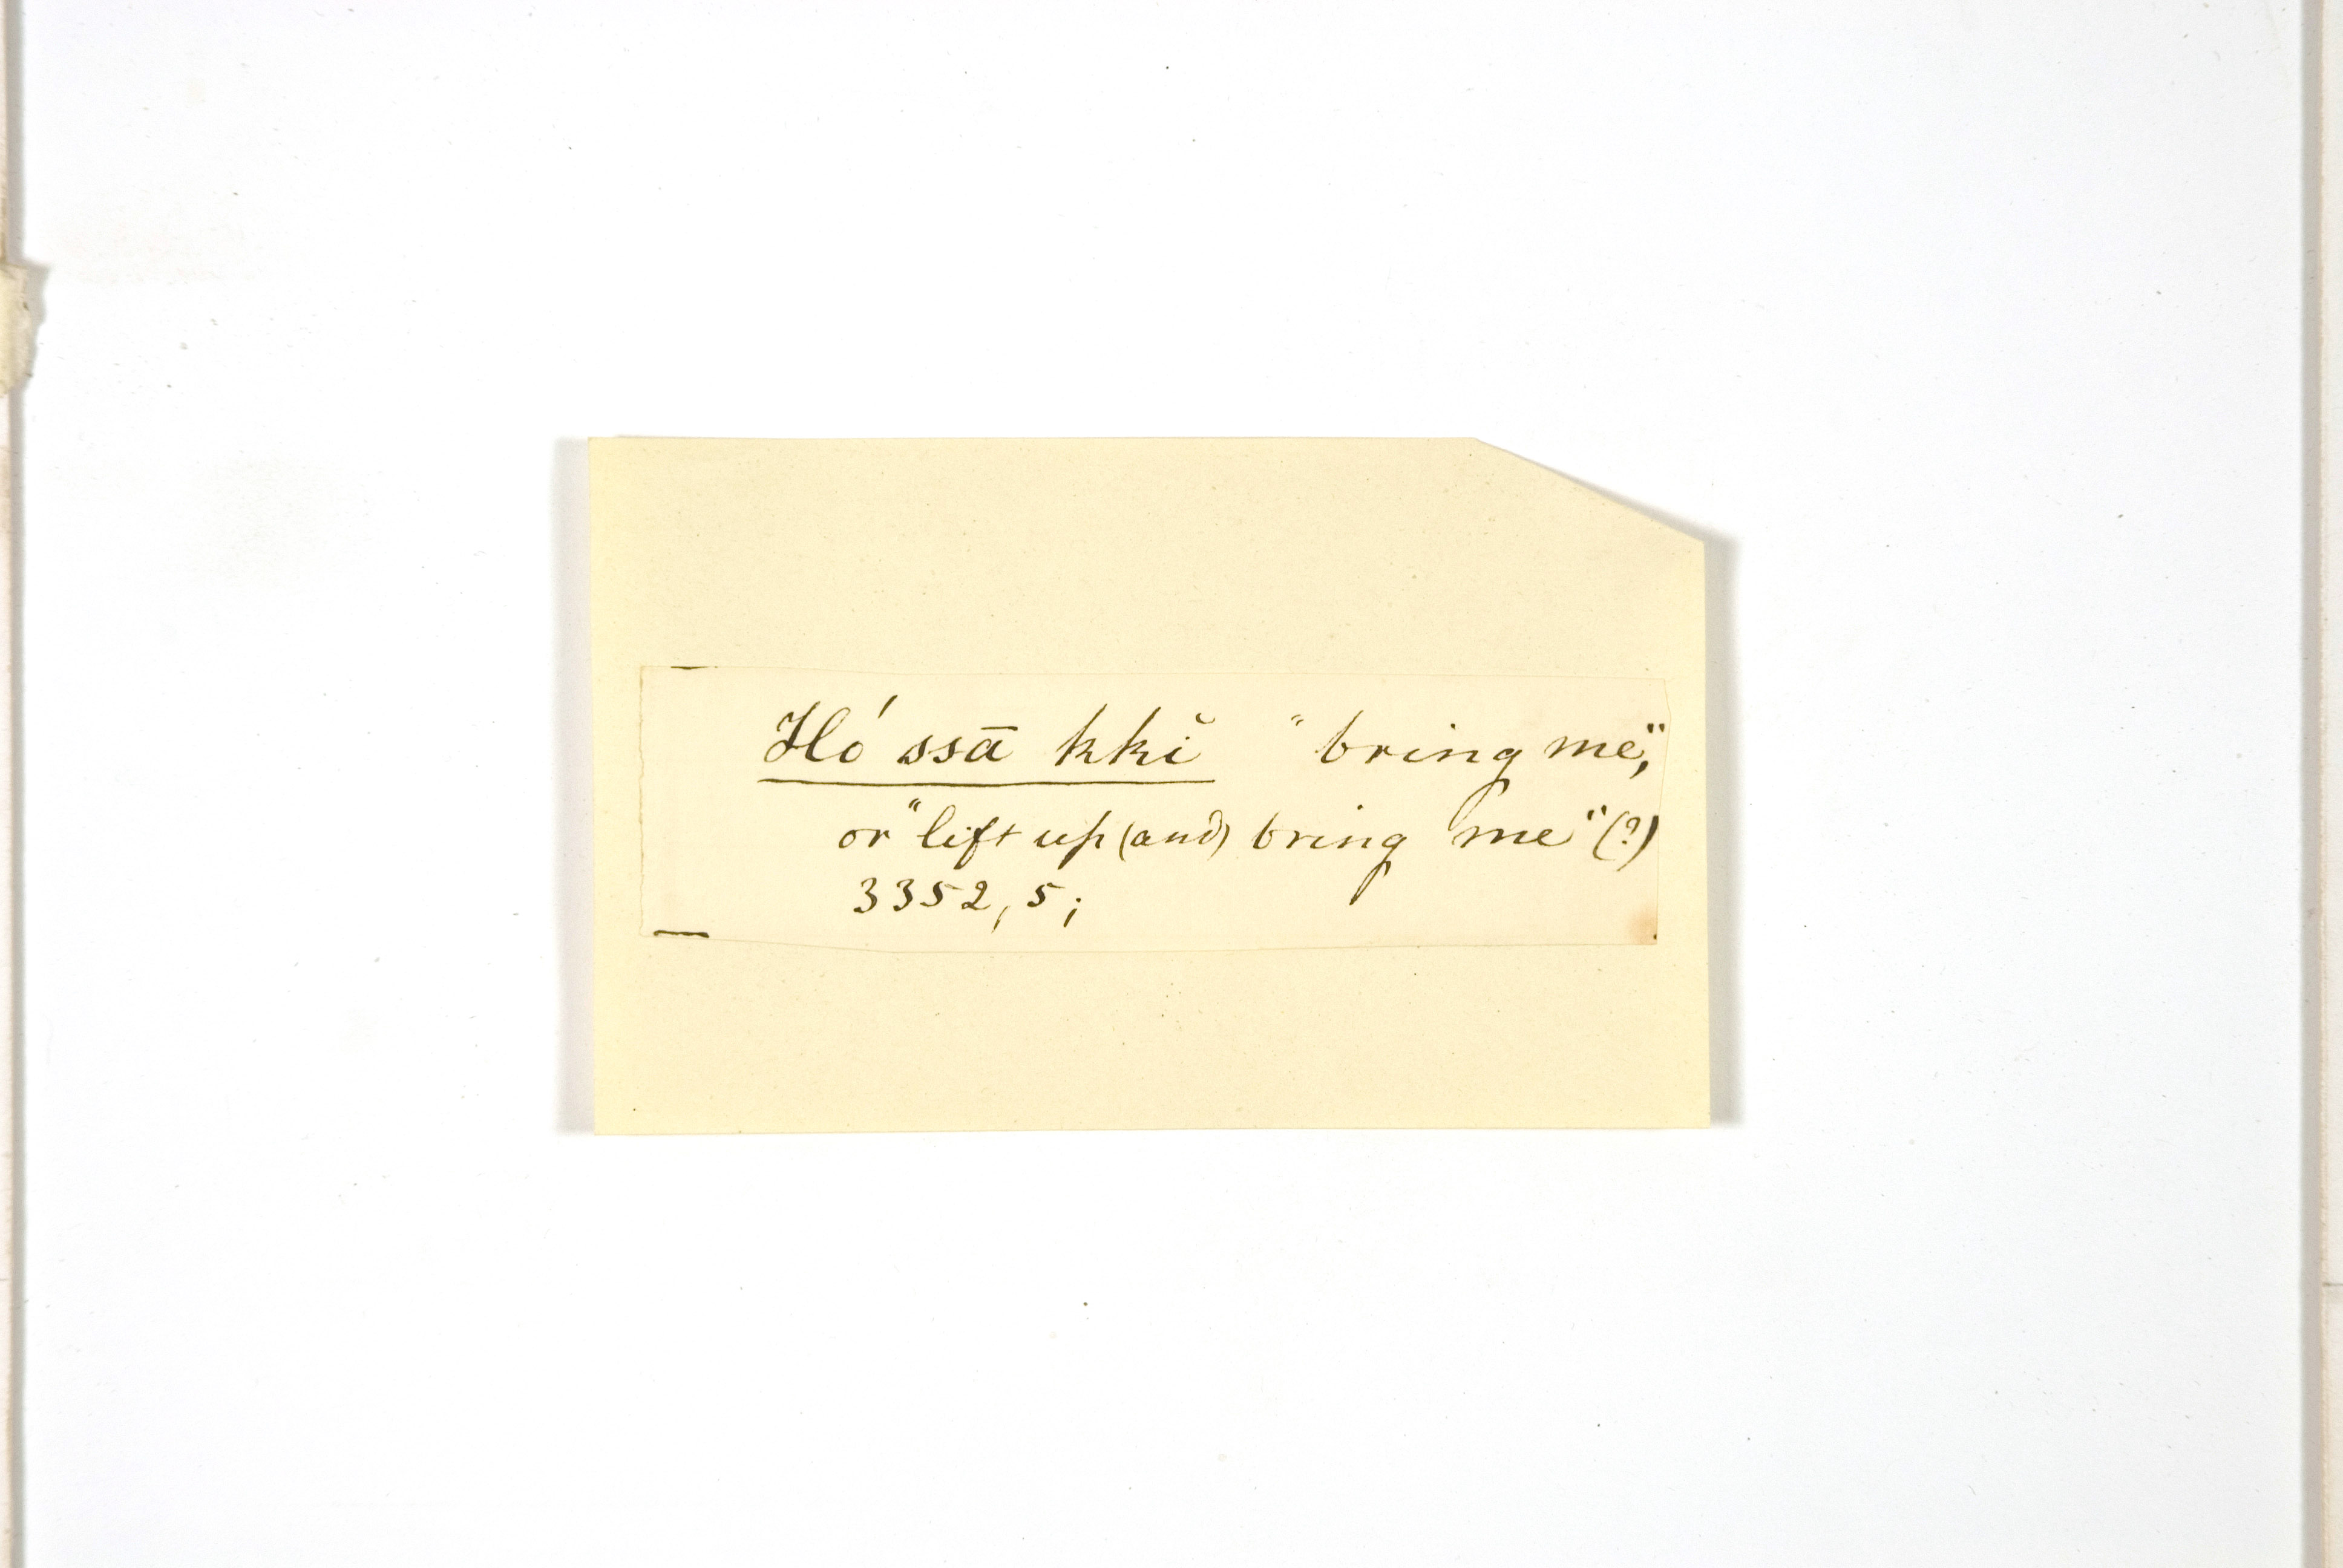 Hó ssā kkĭ "bring me",
or "lift up (and) bring me" (?)
3352, 5;